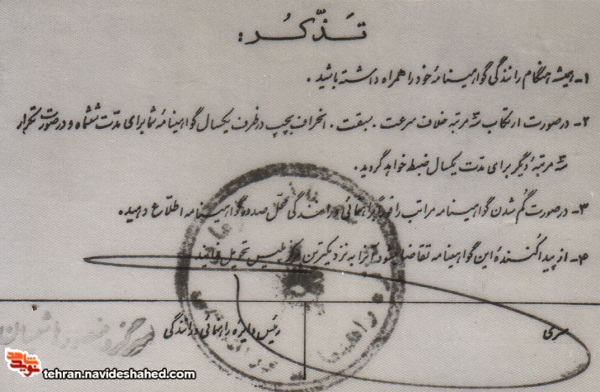 تذکر :
۱- همیشه هنگام رانندگی گواهینامه خود را همراه داشته باشید .
۲- در صورت ارتکاب سه مرتبه خلاف سرعت . سبقت . انحراف بچپ در ظرف یکسال گواهینامه شما برای مدت ششماه و در صورت تکرار
سه مرتبه دیگر برای مدت یکسال ضبط خواهد گردید .
۳- در صورت گم شدن گواهینامه مراتب را فوراً براهنمائی و رانندگی محل صدور گواهینامه اطلاع دهید .
۴- از پیدا کننده این گواهینامه تقاضا میشود آنرا به نزدیکترین مرکز پلیس تحویل فرمایند
رئیس دایره راهنمائی و رانندگی
tehran.navideshahed.com